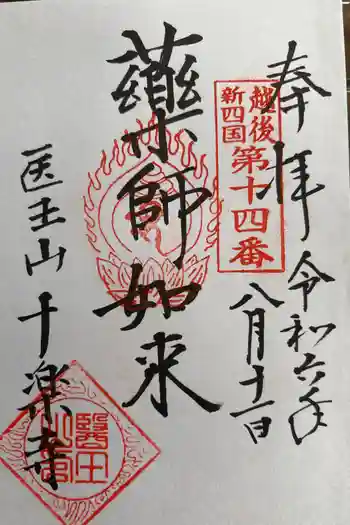 奉拝
令和六年
八月十一日
越後
新四国
第十四番
藥師如来
医王山
千楽寺